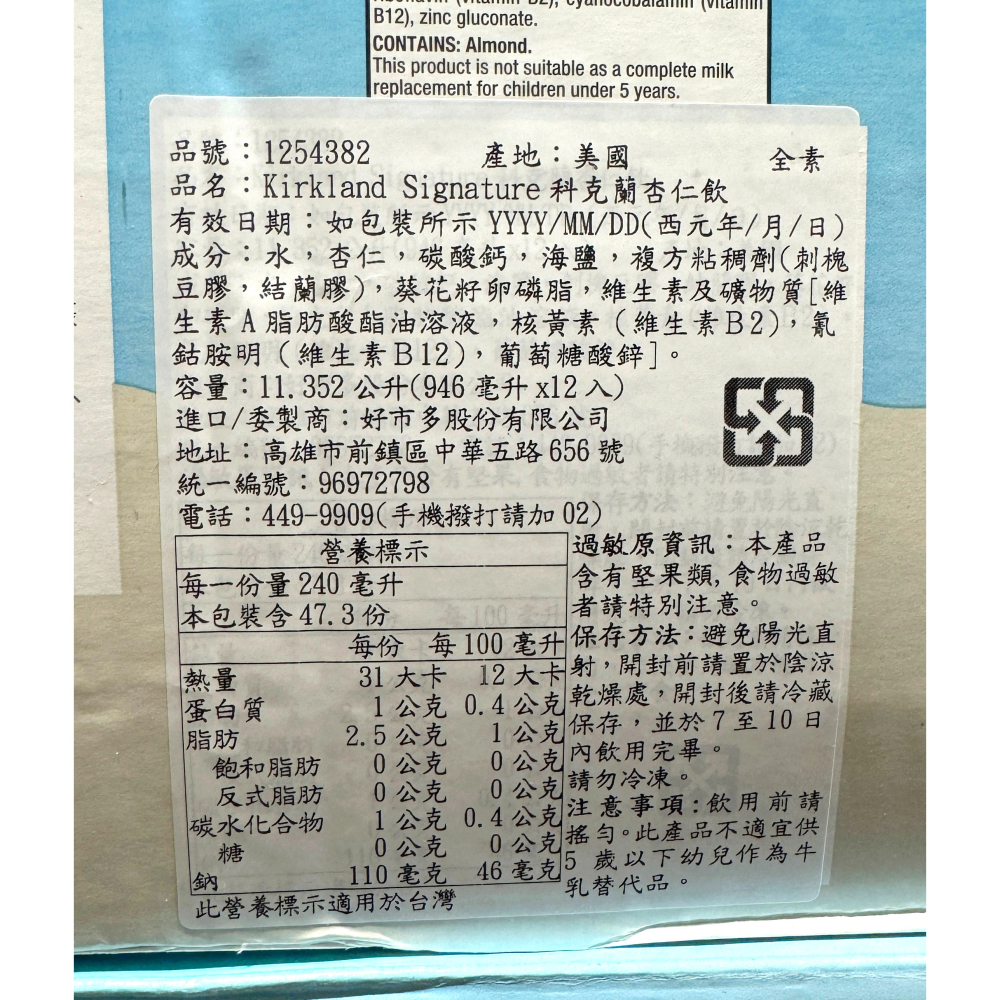 B12), zinc gluconate.
CONTAINS: Almond.
This product is not suitable as a complete milk
replacement for children under 5 years.
品號：1254382 產地：美國 全素
品名：Kirkland Signature 科克蘭杏仁飲
有效日期：如包裝所示 YYYY/MM/DD(西元年/月/日)
成分：水，杏仁，碳酸鈣，海鹽，複方粘稠劑(刺槐
豆膠，結蘭膠)，葵花籽卵磷脂，維生素及礦物質[維
生素 A 脂肪酸酯油溶液，核黃素（維生素B2)，氰
鈷胺明（維生素B12)，葡萄糖酸鋅]。
容量：11.352 公升(946 毫升 x12 入)
進口/委製商：好市多股份有限公司
地址：高雄市前鎮區中華五路 656 號
統一編號：96972798
電話：449-9909(手機撥打請加 02)
營養標示
每一份量 240 毫升
本包裝含 47.3 份
每份 每 100 毫升
熱量 31 大卡 12 大卡
蛋白質 1 公克 0.4 公克
脂肪 2.5 公克 1 公克
飽和脂肪 0 公克 0 公克
反式脂肪 0 公克 0 公克
碳水化合物 1 公克 0.4 公克
糖 0 公克 0 公克
鈉 110 毫克 46 毫克
此營養標示適用於台灣
過敏原資訊：本產品
含有堅果類,食物過敏
者請特別注意。
保存方法：避免陽光直
射，開封前請置於陰涼
乾燥處，開封後請冷藏
保存，並於 7 至 10 日
內飲用完畢。
請勿冷凍。
注意事項：飲用前請
搖勻。此產品不適宜供
5 歲以下幼兒作為牛
乳替代品。